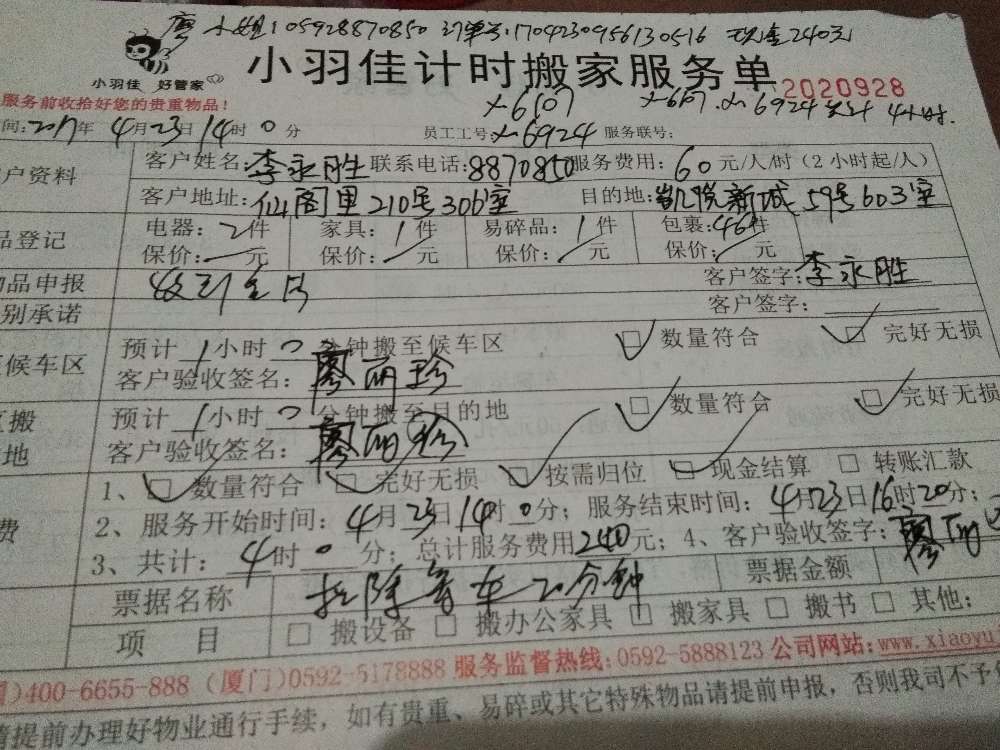 廖小姐 105928870850 订单号:1704230956130516 现金240元
小羽佳 好管家
小羽佳计时搬家服务单 2020928
服务前收拾好您的贵重物品!
X-6107 X-6107、X-6924 共计4小时.
间:2017年4月23日14时0分 员工工号:X-6924 服务联号:
户资料 客户姓名:李永胜 联系电话:8870850 服务费用:60元/人/时(2小时起/人)
客户地址:仙阁里210号306室 目的地:凯悦新城59号603室
品登记 电器:2件 家具:1件 易碎品:1件 包裹:46件
保价: 元 保价: 元 保价: 元 保价: 元
物品申报 客户签字:李永胜
别承诺 客户签字:
候车区 预计1小时0分钟搬至候车区 数量符合 完好无损
客户验收签名:廖丽珍
搬 预计1小时0分钟搬至目的地 数量符合 完好无损
地 客户验收签名:廖丽珍
1、 数量符合 完好无损 按需归位 现金结算 转账汇款
费 2、服务开始时间:4月23日14时0分;服务结束时间:4月23日16时20分;
3、共计:4时0分;总计服务费用240元;4、客户验收签字:廖丽
票据名称 扣除等车20分钟 票据金额
项 目 搬设备 搬办公家具 搬家具 搬书 其他:
)400-6655-888 (厦门)0592-5178888 服务监督热线:0592-5888123 公司网站:www.xiaoyu
请提前办理好物业通行手续,如有贵重、易碎或其它特殊物品请提前申报,否则我司不予